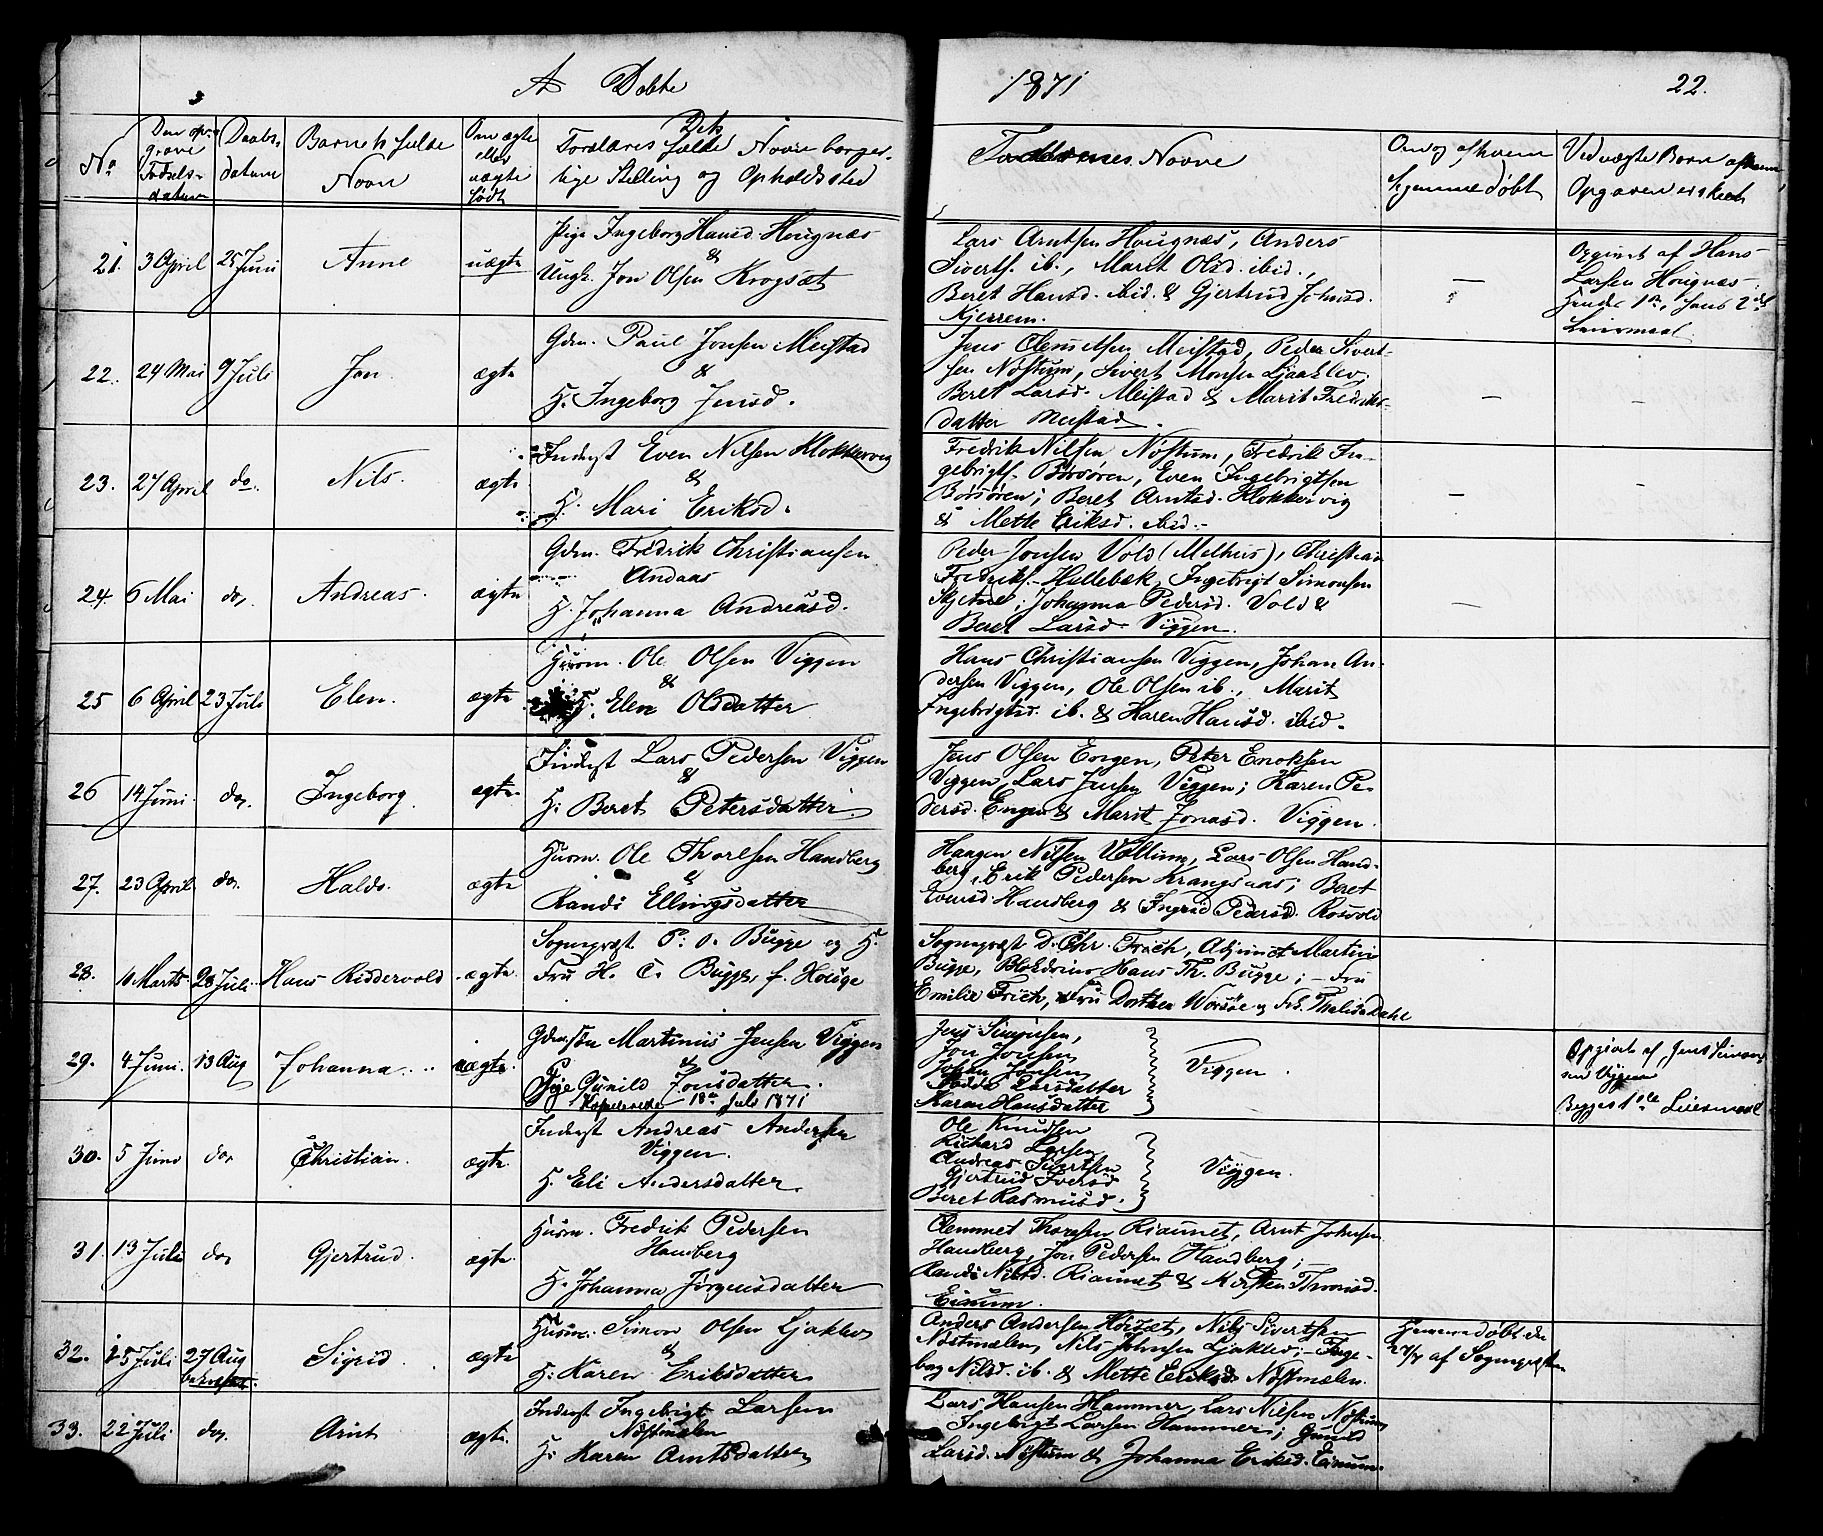 A Døbte
1871
22.
No
Den op-
givne
Fødsels-
datum
Daabs-
datum
Barnets fulde
Navn
Om ægte
eller
uægte
født
Dets
Forældres fulde Navne borger-
lige Stilling og Opholdssted
Faddernes Navne
Om og af hvem
hjemmedøbt
Ved uægte Børn af hvem
Opgaven er skeet
21. 3 April 25 Juni Anne uægte
Pige Ingeborg Hansd. Hougnæs
&
Ungk. Jon Olsen Krogsæt
Lars Arntsen Hougnæs, Anders
Siverts. ib., Marit Olsd. ibid.,
Beret Hansd. ibid. & Gjertrud Johnsd.
Kjerrem.
—
Opgivet af Hans
Larsen Hougnæs
Hendes 1ste, hans 2det
Leiermaal.
22. 24 Mai 9 Juli Jon. ægte
Gdm. Paul Jonsen Meistad
&
H. Ingeborg Jensd.
Jens Clemetsen Meistad, Peder Sivert-
sen Nøstum, Sivert Monsen Ljaaklev,
Beret Larsd. Meistad & Marit Fredriks-
datter Meistad.
—
—
23. 27 April do. Nils. ægte
Inderst Even Nilsen Klokkervig
&
H. Mari Eriksd.
Fredrik Nilsen Nøstum, Fredrik In-
gebrigts. Børsøren, Even Ingebrigtsen
Børsøren; Beret Arntsd. Klokkervig
& Mette Eriksd. ibid.
—
—
24. 6 Mai do. Andreas. ægte
Gdm. Fredrik Christiansen
Andaas
H. Johanna Andreasd.
Peder Jonsen Vold (Melhus), Christian
Fredriks. Hallebæk, Ingebrigt Simonsen
Johanna Pedersd. Vold &
Beret Larsd. Viggen.
—
25 6 April 23 Juli Elen. ægte
Husm. Ole Olsen Viggen
&
H. Elen Olsdatter
Hans Christiansen Viggen, Johan An-
dersen Viggen, Ole Olsen ib., Marit
Ingebrigtsd. ib. & Karen Hansd. ibid.
26 14 Juni do. Ingeborg. ægte
Inderst Lars Pedersen Viggen
&
H. Beret Petersdatter.
Jens Olsen Engen, Peter Enoksen
Viggen, Lars Jensen Viggen; Karen Pe-
dersd. Engen & Marit Jonasd. Viggen.
27. 23 April do. Haldo. ægte
Husm. Ole Thorlsen Handberg
&
Randi Ellingsdatter
Haagen Nilsen Vollum, Lars Olsen Hand-
berg, Erik Pedersen Krangsaas; Beret
Evensd. Handberg & Ingrid Pedersd. Rosvold
28. 10 Marts 28 Juli Hans Riddervold ægte
Sognepræst P. O. Bugge og H.
Fru H. C. Bugge, f. Houge
Sognepræst D. Chr. Frich, Adjunct Martin
Bugge, Hans Th. Bugge; – Fru
Emilie Frich, Fru Dorthea Worsøe og Frk. Thalida Dahl
29. 4 Juni 13 Aug Johanna uægte
Gdmsøn Martinus Jensen Viggen
&
Pige Gunild Jonsdatter.
18de Juli 1871
Jens Simonsen,
Jon Jonsen
Johan Jonsen
Larsdatter
Karen Hansdatter
Viggen
Opgivet af Jens Simon-
sen Viggen
Begges 1ste Leiermaal
30. 5 Juni do. Christian. ægte
Inderst Andreas Andersen
Viggen.
H. Eli Andersdatter.
Ole Knudsen
Richard Larsen
Andreas Sivertsen
Gjertrud Iversd
Beret Rasmusd.
Viggen.
31. 13 Juli do. Gjertrud. ægte
Husm. Fredrik Pedersen
Handberg
H. Johanna Jørgensdatter
Clemmet Thomsen Riaunet, Arnt Johnsen
Handberg, Jon Pedersen Handberg;
Randi Nilsd. Riaunet & Kirsten Thomsd.
Einum.
32. 25 Juli 27 Aug Sigrid. ægte
Husm. Simon Olsen Ljaklev
&
H. Karen Eriksdatter
Anders Andersen Høisæt, Nils Sivertsen
Nøstmælen, Nils Johnsen Ljaklev; – Inge-
borg Nilsd. ib. & Mette Eriksd. Nøstmælen.
Hjemmedøbt den
27/7 af Sognepræsten
33. 22 Juli do. Arnt ægte
Inderst Ingebrigt Larsen
Nøstmælen
H. Karen Arntsdatter
Lars Hansen Hammer, Lars Nilsen Nøstum,
Ingebrigt Larsen Hammer; Gunild
Larsd. Nøstum & Johanna Eriksd. Einum.